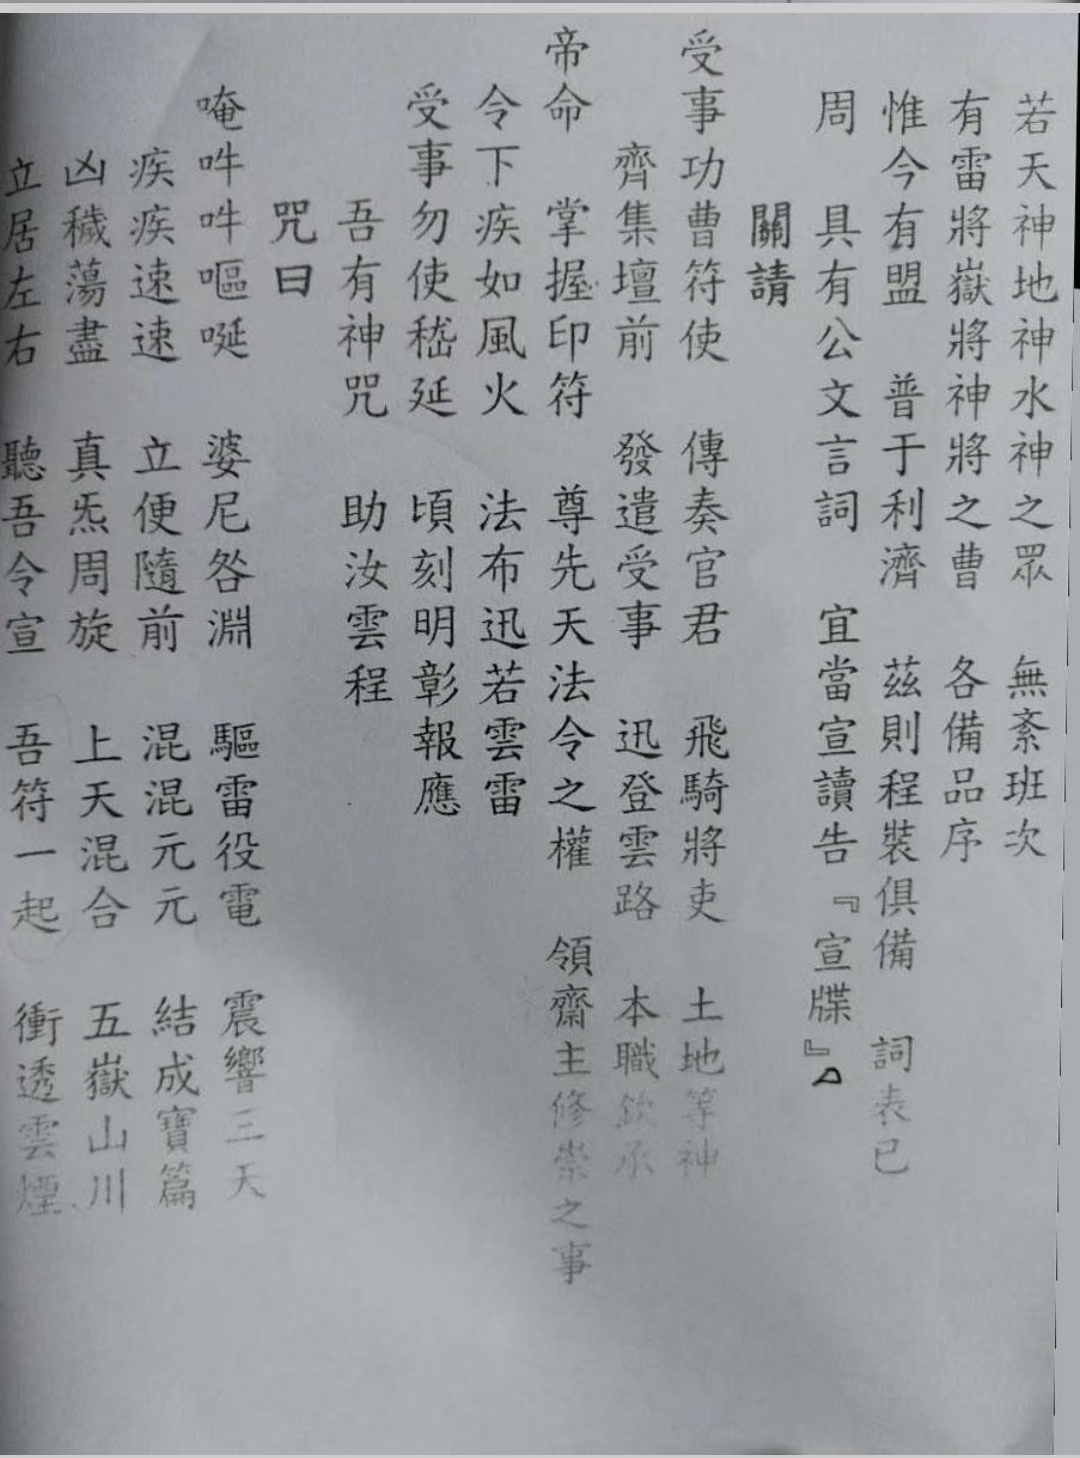 若天神地神水神之眾　無紊班次
有雷將嶽將神將之曹　各備品序
惟今有盟　普于利濟　茲則程裝俱備　詞表已
周　具有公文言詞　宜當宣讀告『宣牒』
關請
受事功曹符使　傳奏官君　飛騎將吏　土地等神
齊集壇前　發遣受事　迅登雲路　本職欽承
帝命　掌握印符　尊先天法令之權　領齋主修崇之事
令下疾如風火　法布迅若雲雷
受事勿使嵇延　頃刻明彰報應
吾有神咒　助汝雲程
咒曰
唵吽吽嘔唌　婆尼咎淵　驅雷役電　震響三天
疾疾速速　立便隨前　混混元元　結成寶篇
凶穢蕩盡　真炁周旋　上天混合　五嶽山川
立居左右　聽吾令宣　吾符一起　衝透雲煙